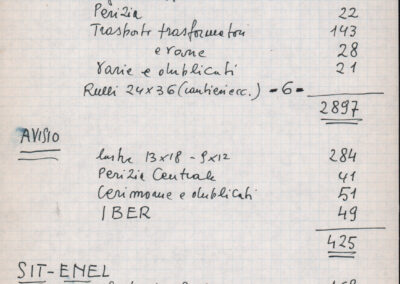 Perizia 22
Trasporto trasformatori 143
e varie 28
Varie e duplicati 21
Rulli 24x36 (cantieri ecc.) - 6 -
2897
AVISIO
lastre 13x18 - 9x12 284
Perizia Centrale 41
Cerimonie e duplicati 51
IBER 49
425
SIT-ENEL